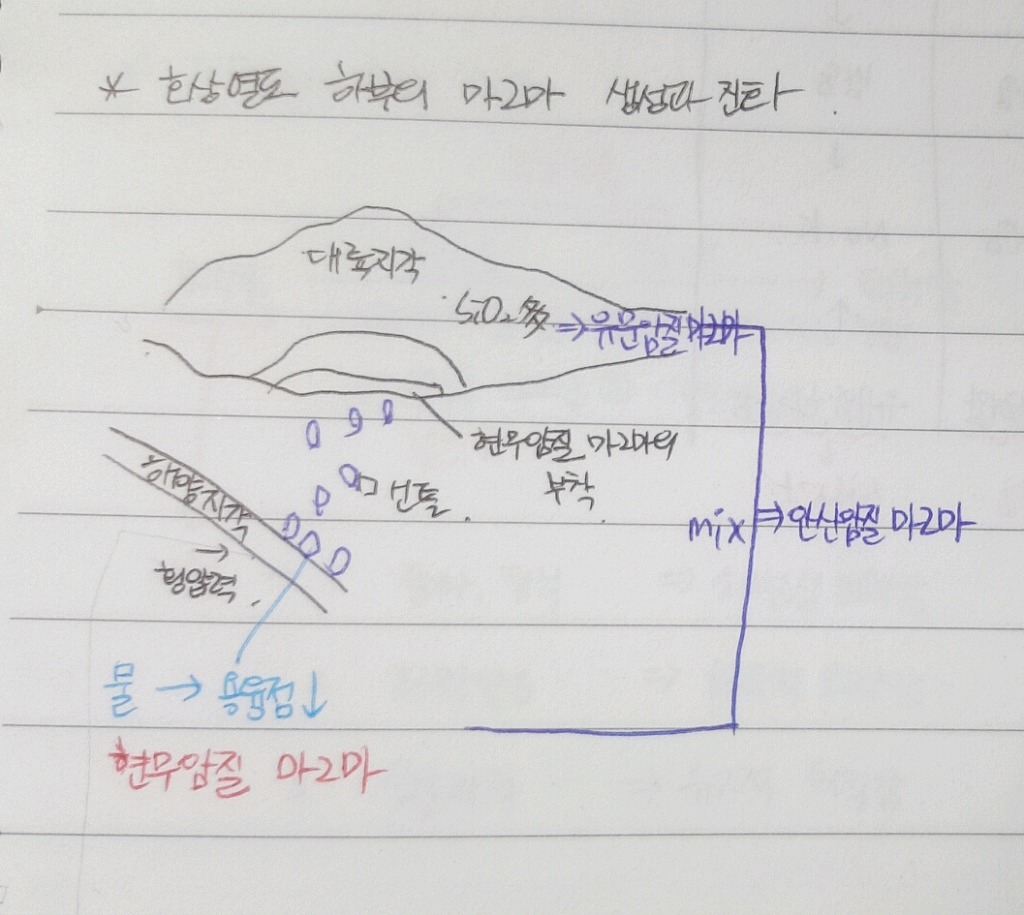 * 호상열도 하부의 마그마 생성과 진화.
대륙지각
SiO₂多 ⇒ 유문암질 마그마
현무암질 마그마의
부착.
맨틀.
해양지각
→
횡압력.
mix ⇒ 안산암질 마그마
물 → 용융점↓
현무암질 마그마